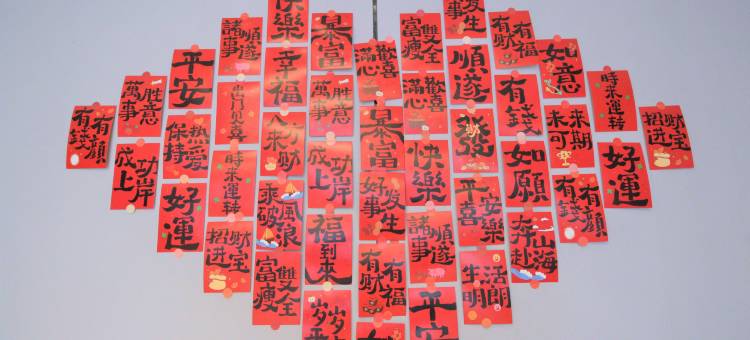 有錢有顏
萬事胜意
成功上岸
平安
保持熱愛
好運
諸事順遂
出門見喜
時来運转
招财進宝
快樂
幸福
乘風破浪
富瘦雙全
暴富
萬事胜意
成功上岸
福到來
岁岁
滿心歡喜
暴富
好事发生
有财有福
富瘦雙全
滿心歡喜
快樂
諸事順遂
平安
发生
順遂
發
平安喜樂
生活明朗
有财有福
有錢
如願
奔赴山海
如意
未来可期
有錢有顏
時来運转
好運
招财進宝